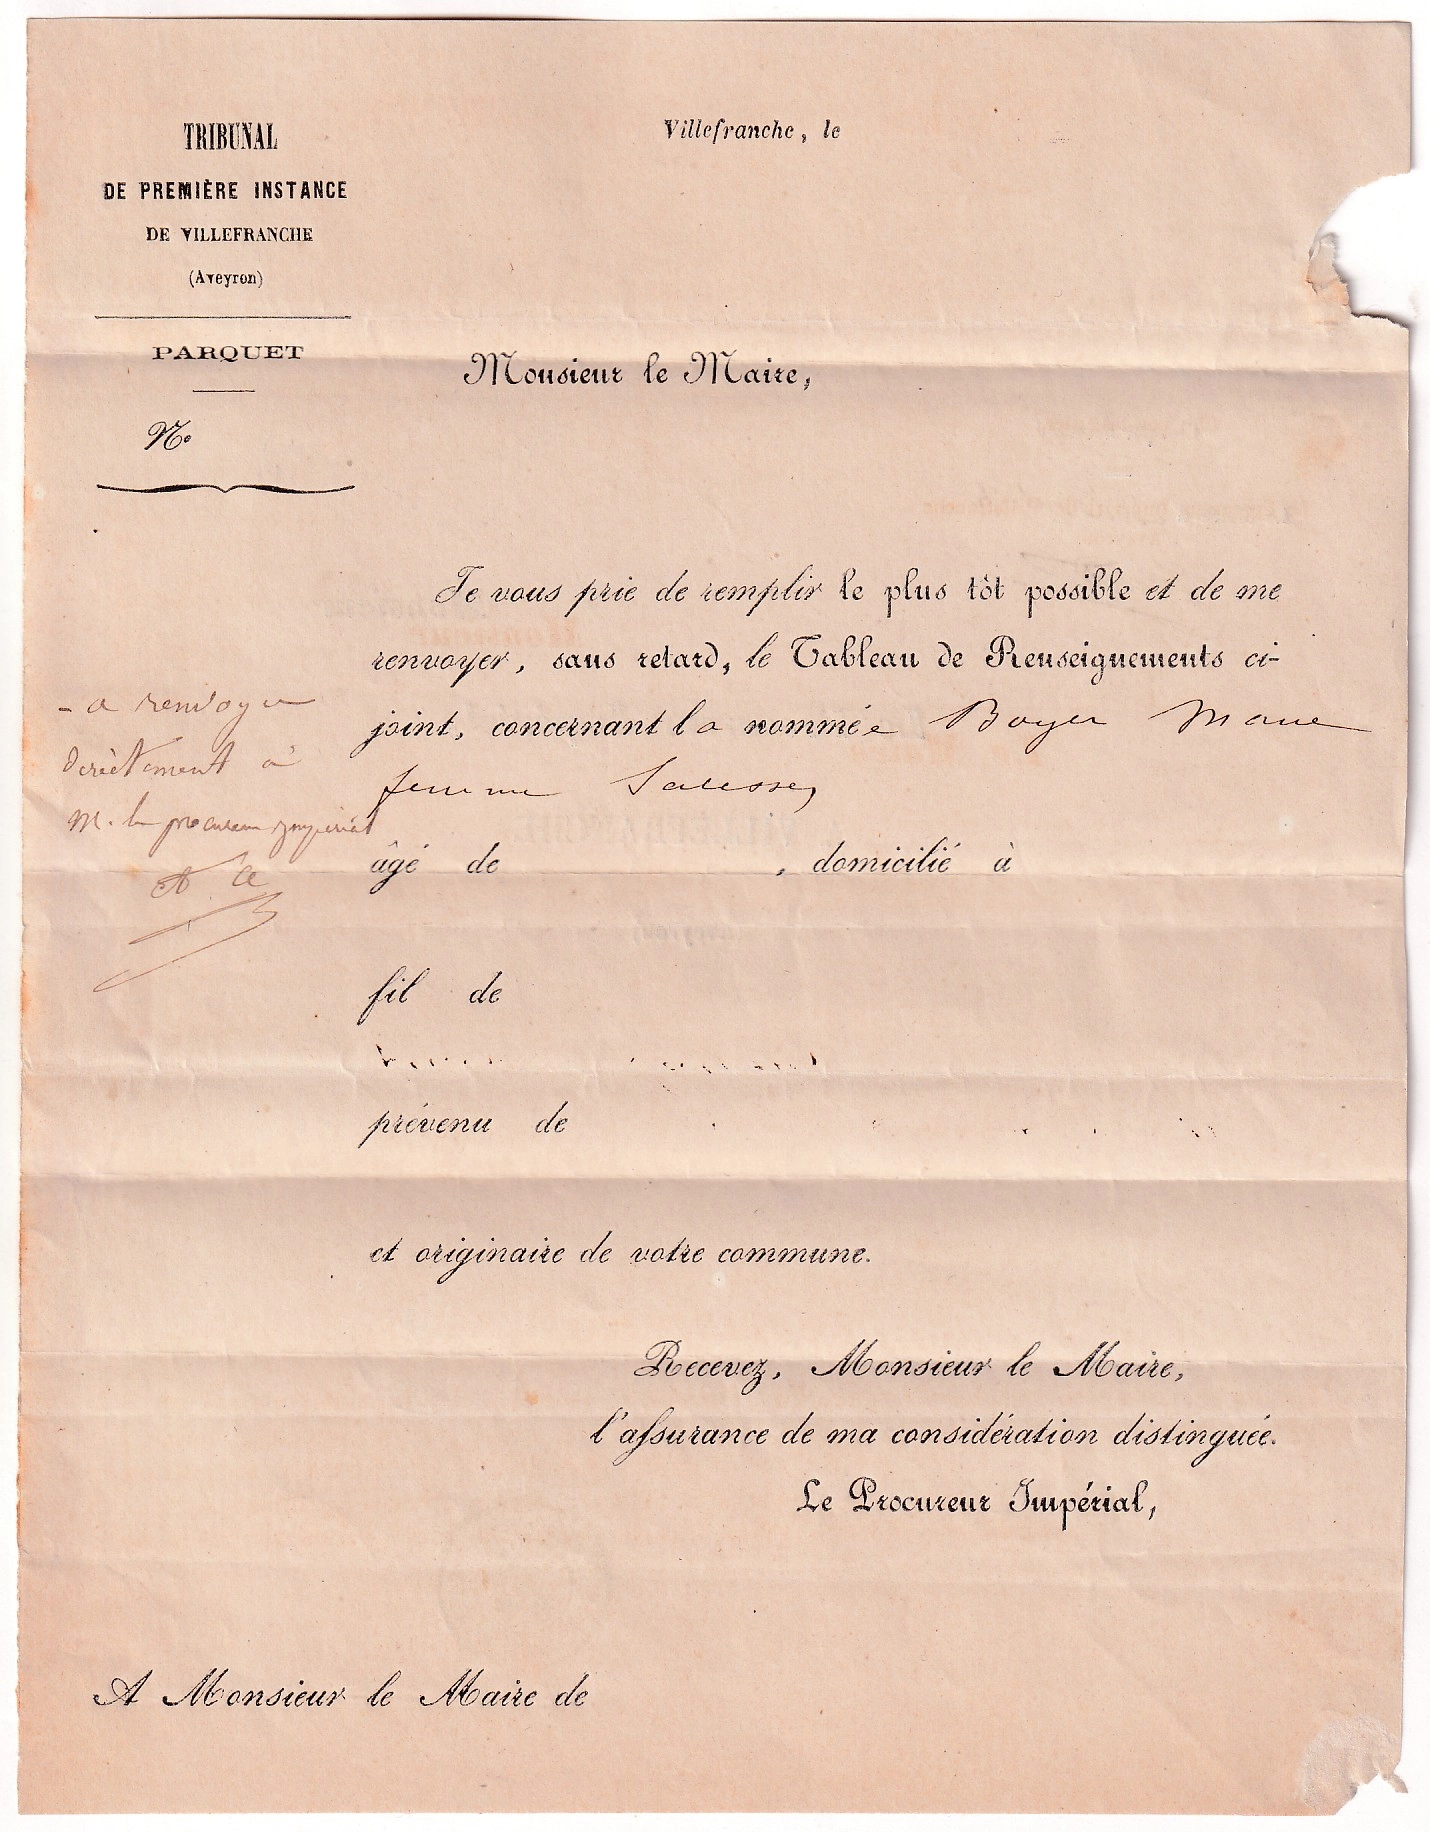 TRIBUNAL
DE PREMIÈRE INSTANCE
DE VILLEFRANCHE
(Aveyron)
PARQUET
N.º
Villefranche, le
Monsieur le Maire,
Je vous prie de remplir le plus tôt possible et de me
renvoyer, sans retard, le Tableau de Renseignements ci-
joint, concernant la nommée Boyer Marie
femme
âgé de , domicilié à
fil de
prévenu de
et originaire de votre commune.
Recevez, Monsieur le Maire,
l'assurance de ma considération distinguée.
Le Procureur Impérial,
A Monsieur le Maire de
- a renvoyer
directement à
M. le procureur impérial